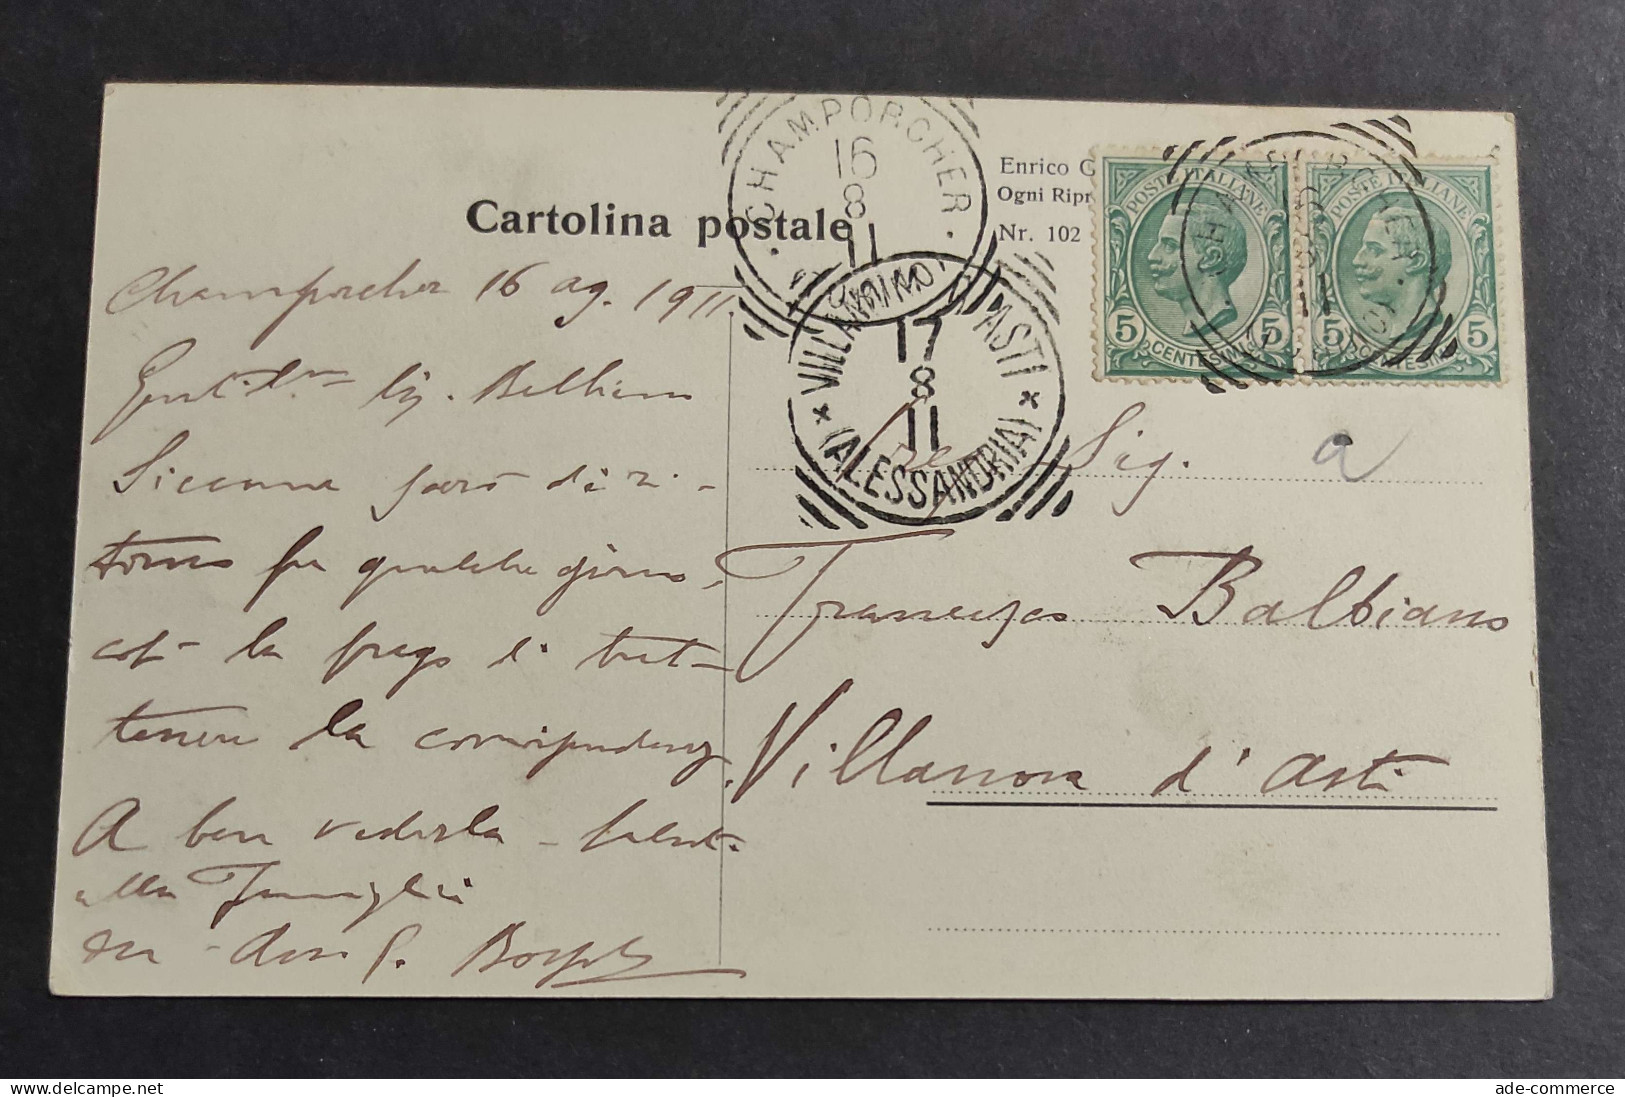 Cartolina postale
CHAMPORCHER
16
8
11
Enrico
Ogni Ripr
Nr. 102
POSTE ITALIANE
5 5
CENTESIMI
POSTE ITALIANE
5 5
CENTESIMI
ASTI
17
8
11
(ALESSANDRIA)
Champorcher 16 ag. 1911.
Sig. Balbiano
Siccome sarò di ri-
torno fra qualche giorno,
così la prego di trat-
tenere la corrispondenza.
A ben vederla -
alla Famiglia
Sig. a
Francesco Balbiano
Villanova d'Asti
ade-commerce